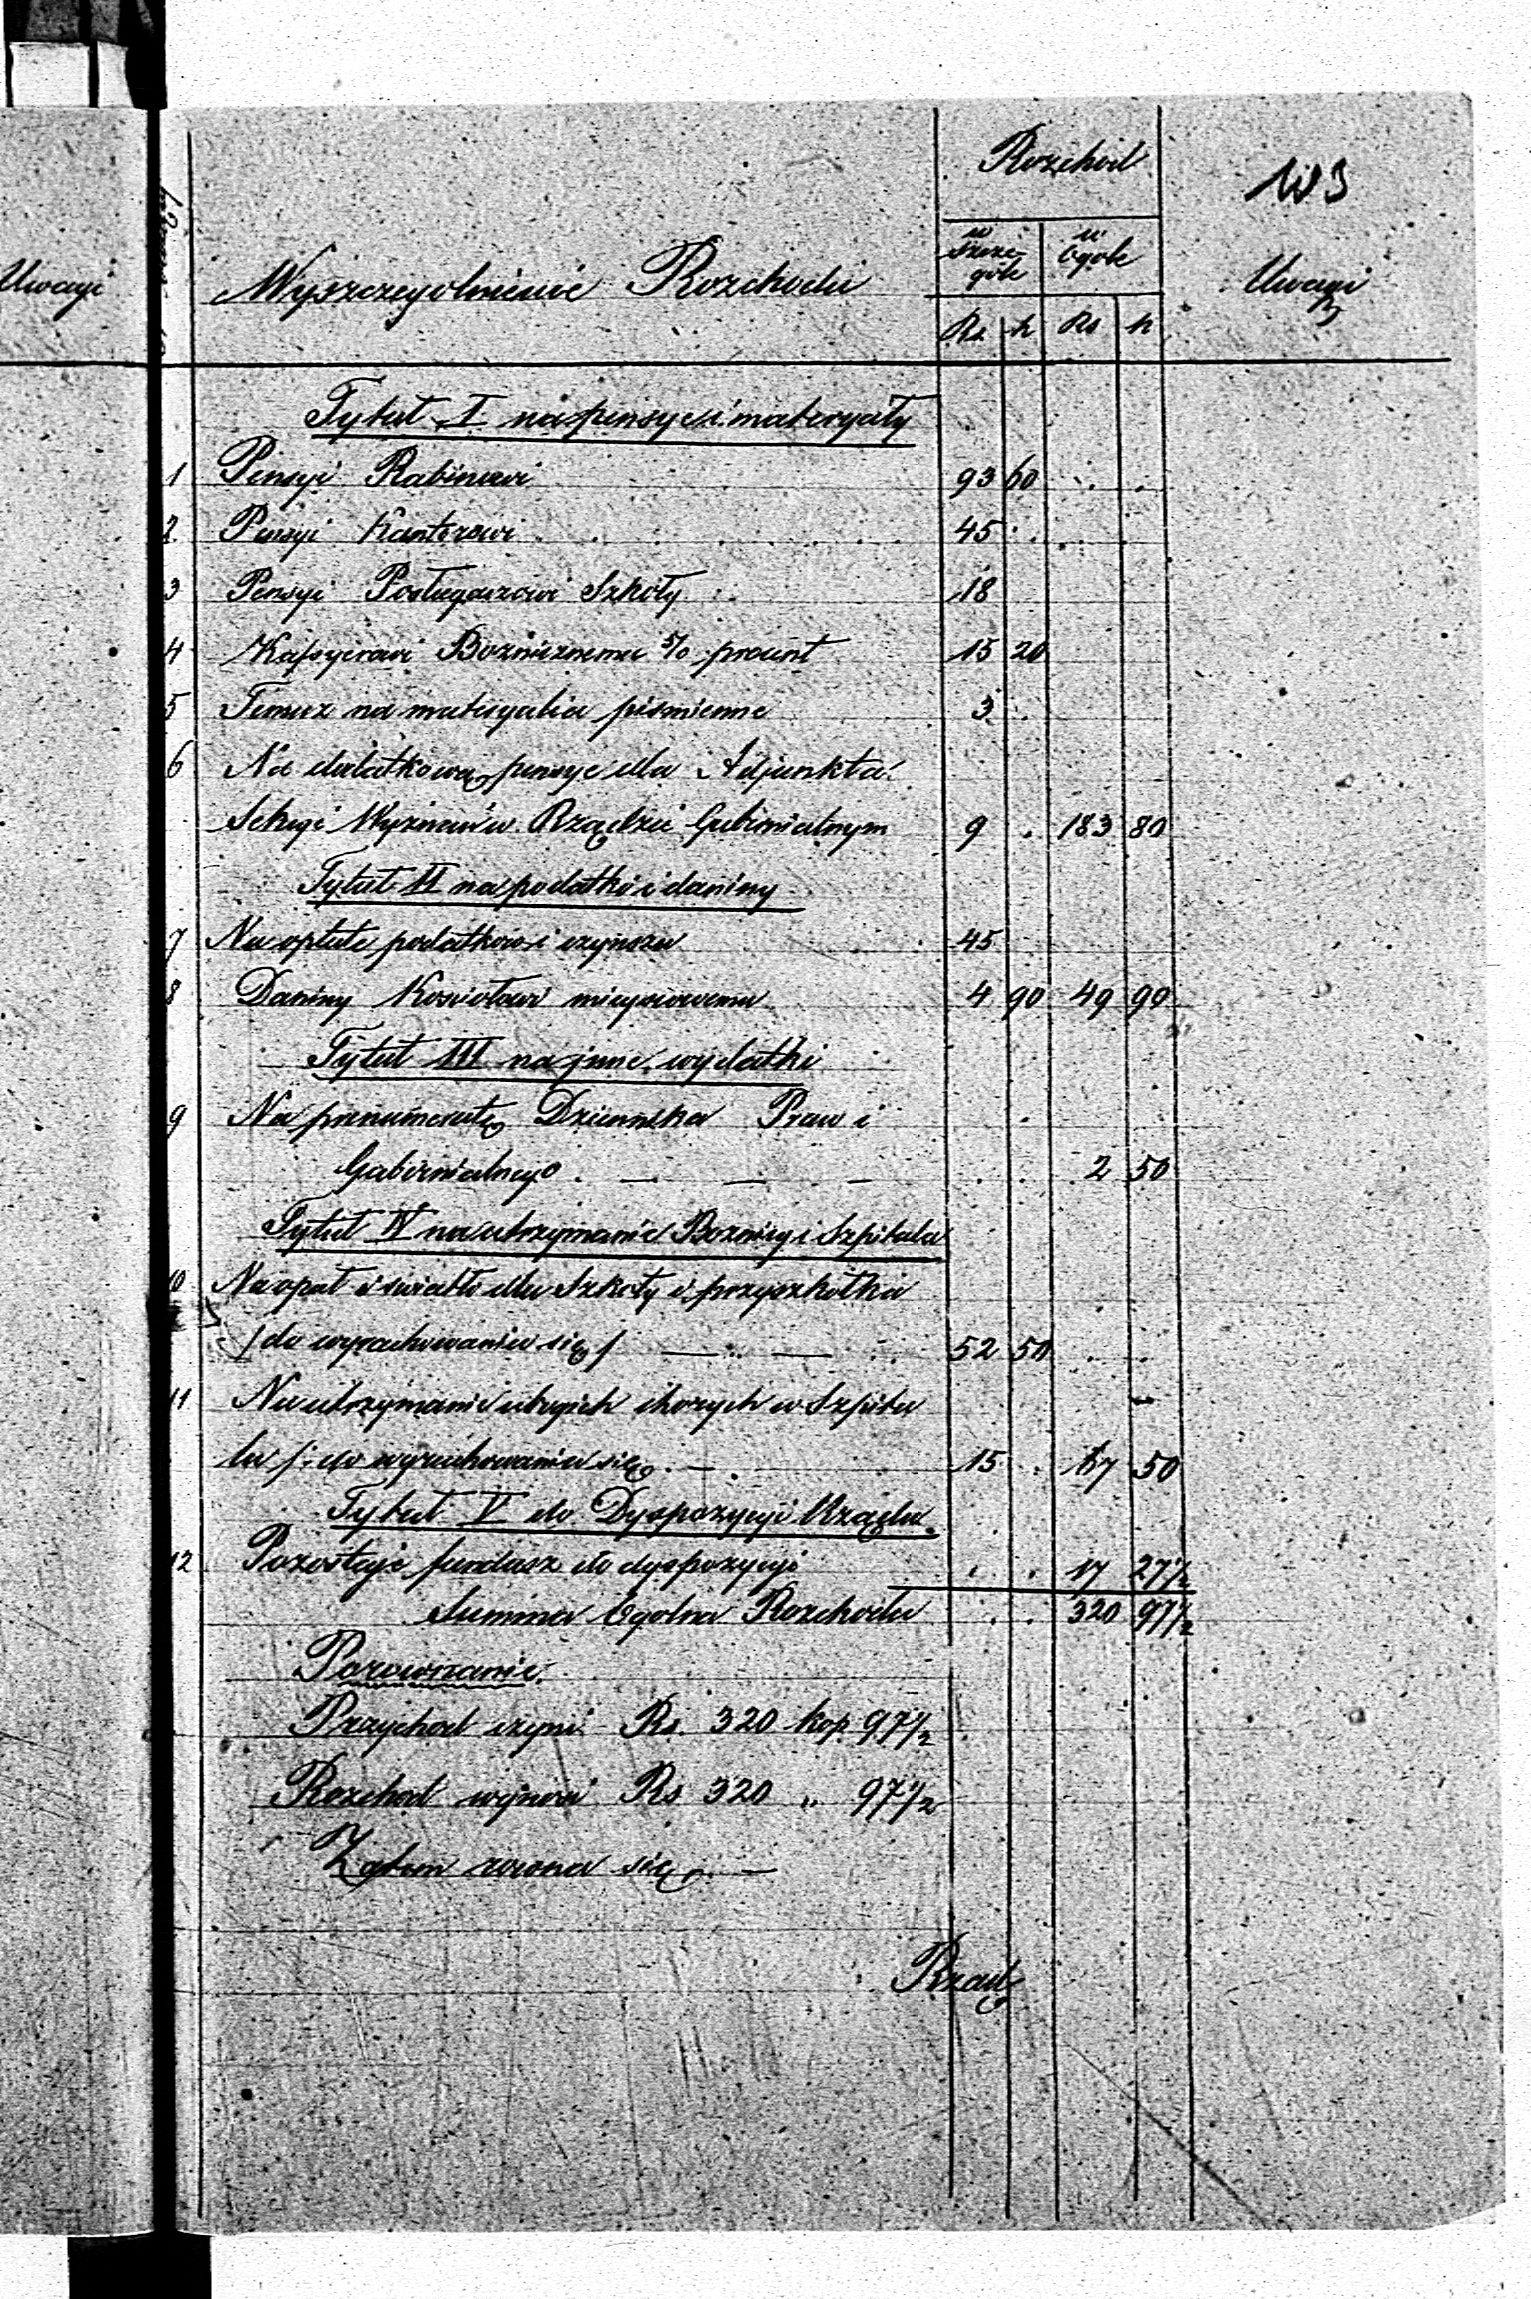 Rozchod
103
w Szczególe
w Ogole
Uwagi
Wyszczegolnienie Rozchodu
Uwagi
Rs k Rs k
Tytuł I na pensye i materyały
1 Pensyi Rabinowi 93 60
2 Pensyi Kantorowi 45
3 Pensyi Posługaczowi Szkoły 18
4 Kassyerowi Bożnicznemu 5/0 procent 15 20
5 Temuz na materyalia piśmienne 3
6 Na dodatkową pensye dla Adjunkta
Sekcyi Wyznań w Rządzie Gubernialnym 9 183 80
Tytuł II na podatki i daniny
7 Na opłate podatkow i czynszu 45
8 Daniny Kosciołowi mieyscowemu 4 90 49 90
Tytuł III na jnne wydatki
9 Na prenumeratę Dziennika Praw i
Gubernialnego 2 50
Tytuł IV na utrzymanie Boznicy i Szpitala
10 Na opał i swiatło dla Szkoły i przyszkołka
/ do wyrachowania się / 52 50
11 Na utrzymanie ubogich chorych w Szpita
lu /: do wyrachowania się 15 67 50
Tytuł V do Dyspozycyi Urzędu
12 Pozostaje fundusz do dyspozycyi 17 27 1/2
Summa Ogolna Rozchodu 320 97 1/2
Porownanie
Przychod czyni Rs. 320 kop 97 1/2
Rozchod wynosi Rs 320 „ 97 1/2
Zatem rowna się —
Rząd